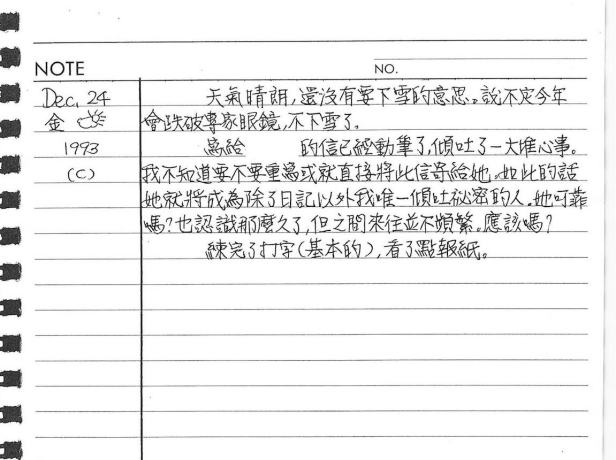 NOTE
NO.
Dec, 24
金
1993
(C)
天氣晴朗,還沒有要下雪的意思。說不定今年
會跌破專家眼鏡,不下雪了。
寫給 的信已經動筆了,傾吐了一大堆心事。
我不知道要不要重寫或就直接將此信寄給她,如此的話
她就將成為除了日記以外我唯一傾吐祕密的人。她可靠
嗎?也認識那麼久了,但之間來往並不頻繁。應該嗎?
練完了打字(基本的),看了點報紙。